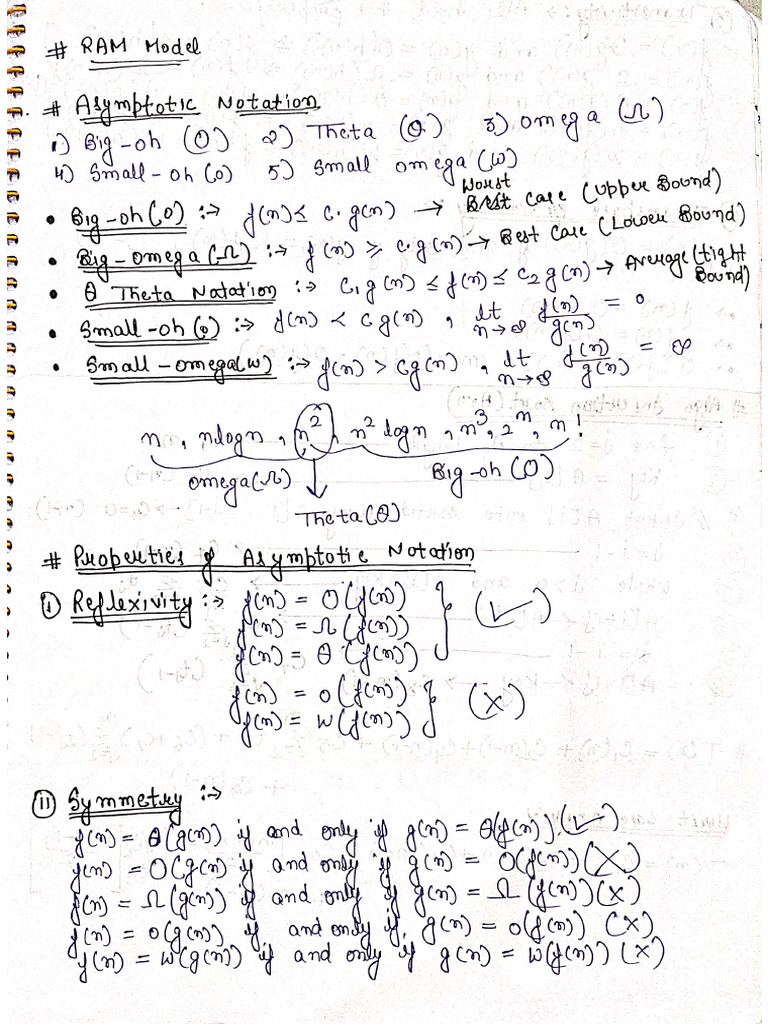 # RAM Model
# Asymptotic Notation
1) Big-oh (O) 2) Theta (θ) 3) omega (Ω)
4) Small-oh (o) 5) Small omega (w)
• Big-oh (O) :→ f(n) ≤ c. g(n) → Worst Best Case (Upper Bound)
• Big-omega (Ω) :→ f(n) ≥ c. g(n) → Best Case (Lower Bound)
• θ Theta Notation :→ C₁ g(n) ≤ f(n) ≤ C₂ g(n) → Average (tight Bound)
• Small-oh (o) :→ f(n) < c g(n), lt n→∞ f(n)/g(n) = 0
• Small-omega (w) :→ f(n) > c g(n), lt n→∞ f(n)/g(n) = ∞
n, nlogn, n², n² logn, n³, 2ⁿ, n!
omega (Ω) Big-oh (O)
Theta (θ)
# Properties of Asymptotic Notation
(i) Reflexivity :→ f(n) = O(f(n))
f(n) = Ω(f(n)) (✓)
f(n) = θ(f(n))
f(n) = o(f(n))
f(n) = w(f(n)) (X)
(ii) Symmetry :→
f(n) = θ(g(n)) if and only if g(n) = θ(f(n)). (✓)
f(n) = O(g(n) if and only if g(n) = O(f(n)) (X)
f(n) = Ω(g(n)) if and only if g(n) = Ω(f(n)) (X)
f(n) = o(g(n)) if and only if, g(n) = o(f(n)) (X)
f(n) = w(g(n)) if and only if g(n) = w(f(n)) (X)